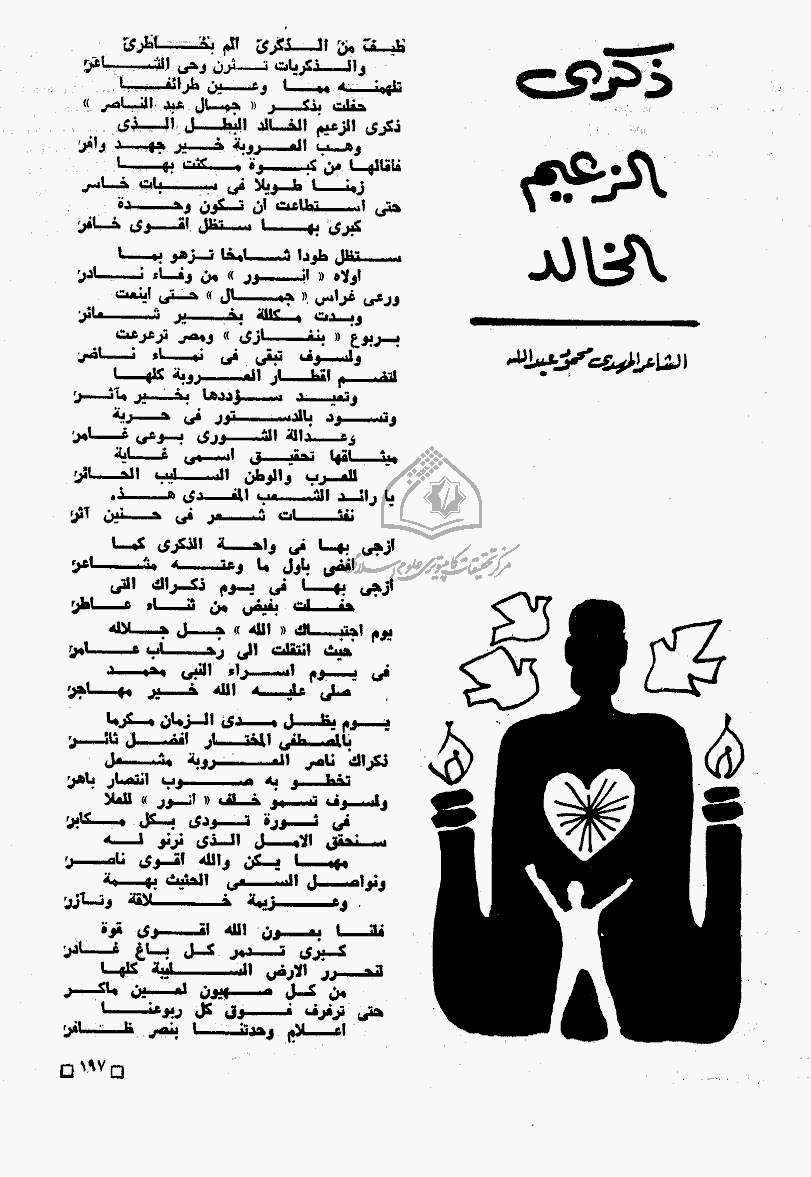 ذكرى
الزعيم
الخالد
الشاعر المهدى محمود عبد الله
طيف من الذكرى الم بخاطرى
والذكريات تثرن وحى الشاعر
تلهمنه مما وعين طرائفا
حفلت بذكر « جمال عبد الناصر »
ذكرى الزعيم الخالد البطل الذى
وهب العروبة خير جهد وافر
فأقالها من كبوة مكثت بها
زمنا طويلا فى سبات خاسر
حتى استطاعت ان تكون وحدة
كبرى بها ستظل اقوى خافر
ستظل طودا شامخا تزهو بما
اولاه « انور » من وفاء نادر
ورعى غراس « جمال » حتى اينعت
وبدت مكللة بخير شعائر
بربوع « بنغازى » ومصر ترعرعت
ولسوف تبقى فى نماء ناضر
لتضم اقطار العروبة كلها
وتعيد سؤددها بخير مآثر
وتسود بالدستور فى حرية
وعدالة الشورى بوعى غامر
ميثاقها تحقيق اسمى غاية
للعرب والوطن السليب الحائر
يا رائد الشعب المفدى هذه
نفثات شعر فى حنين آثر
ازجى بها فى واحة الذكرى كما
افضى باول ما وعته مشاعر
ازجى بها فى يوم ذكراك التى
حفلت بفيض من ثناء عاطر
يوم اجتباك « الله » جل جلاله
حيث انتقلت الى رحاب عامر
فى يوم اسراء النبى محمد
صلى عليه الله خير مهاجر
يوم يظل مدى الزمان مكرما
بالمصطفى المختار افضل ثائر
ذكراك ناصر العروبة مشعل
تخطو به صوب انتصار باهر
ولسوف تسمو خلف « انور » للعلا
فى ثورة تودى بكل مكابر
سنحقق الامل الذى نرنو له
مهما يكن والله اقوى ناصر
ونواصل السعى الحثيث بهمة
وعزيمة خلاقة وتآزر
فلنا بعون الله اقوى قوة
كبرى تدمر كل باغ غادر
لنحرر الارض السليبة كلها
من كل صهيون لعين ماكر
حتى ترفرف فوق كل ربوعنا
اعلام وحدتنا بنصر ظافر
مركز تحقيقات كامپيوترى علوم اسلامى
١٩٧